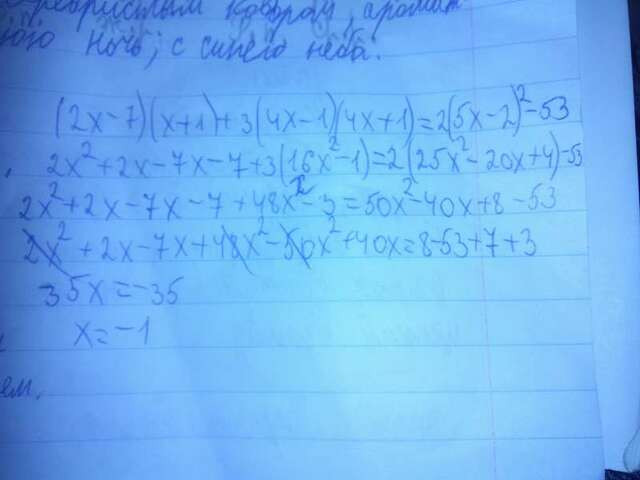 ковром, аромат
ночь, с синего неба.
(2x-7)(x+1)+3(4x-1)(4x+1)=2(5x-2)²-53
2x²+2x-7x-7+3(16x²-1)=2(25x²-20x+4)-53
2x²+2x-7x-7+48x²-3=50x²-40x+8-53
2x²+2x-7x+48x²-50x²+40x=8-53+7+3
35x=-35
x=-1
ем.